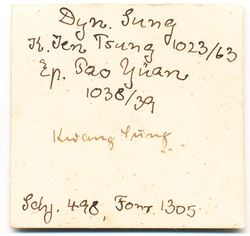 Dyn. Sung
K. Jen Tsung 1023/63
Ep. Pao Yüan
1038/39
Kwang Sung
Schj. 498, Fonr. 1305.